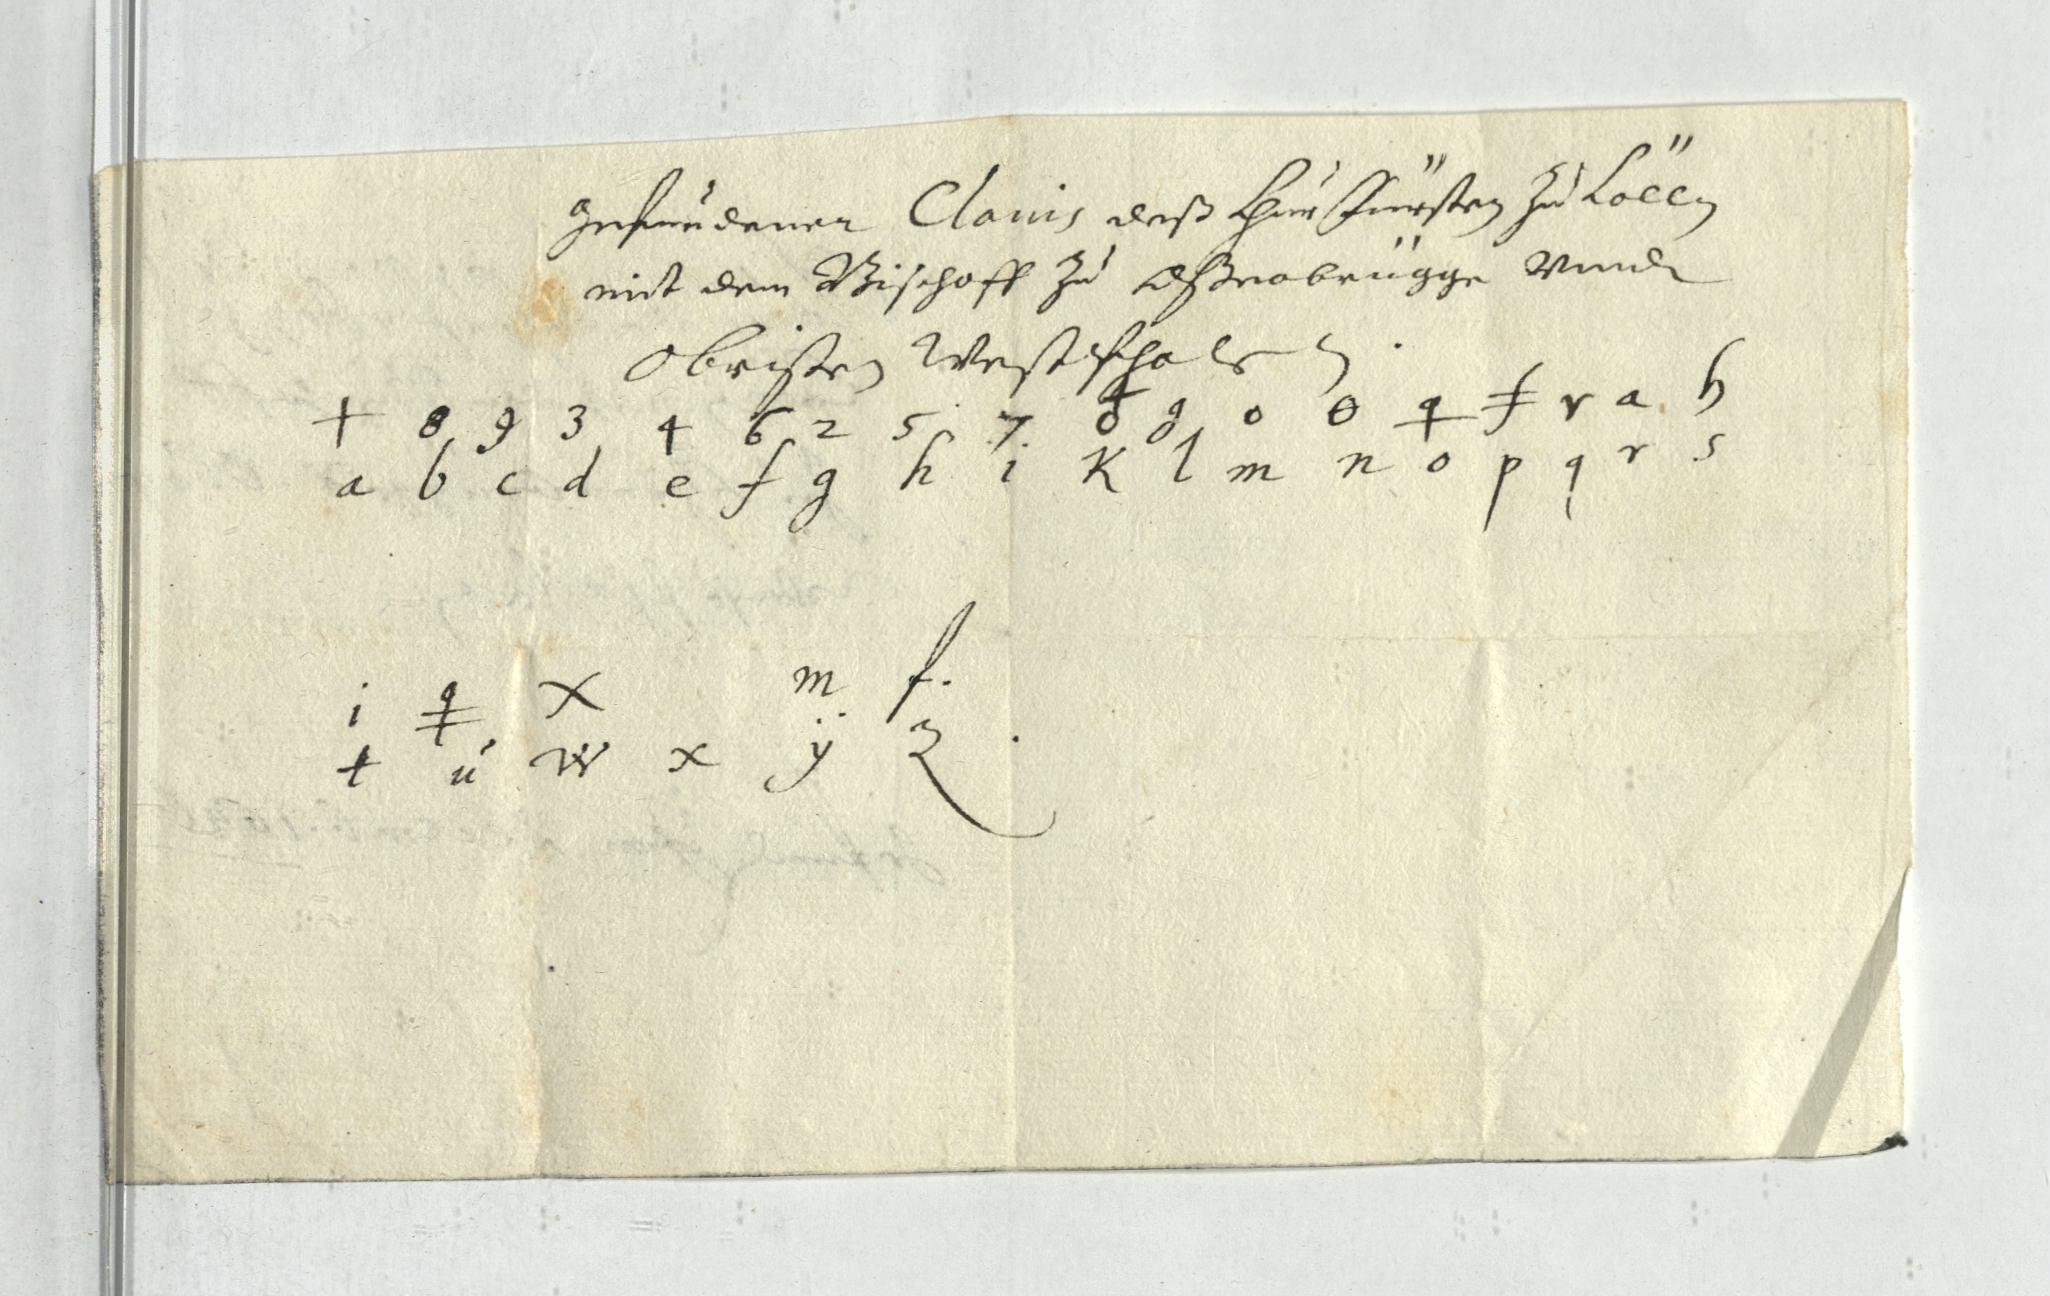 gefundener Clavis deß Churfürsten zu Cölln
mit dem Bischoff zu Oßnabrügge vnndt
Obristen Westphalen.
+ 8 9 3 4 6 2 5 7 g o θ q ɟ r a h
a b c d e f g h i K l m n o p q r s
i q X m f.
t ú w x ÿ z.